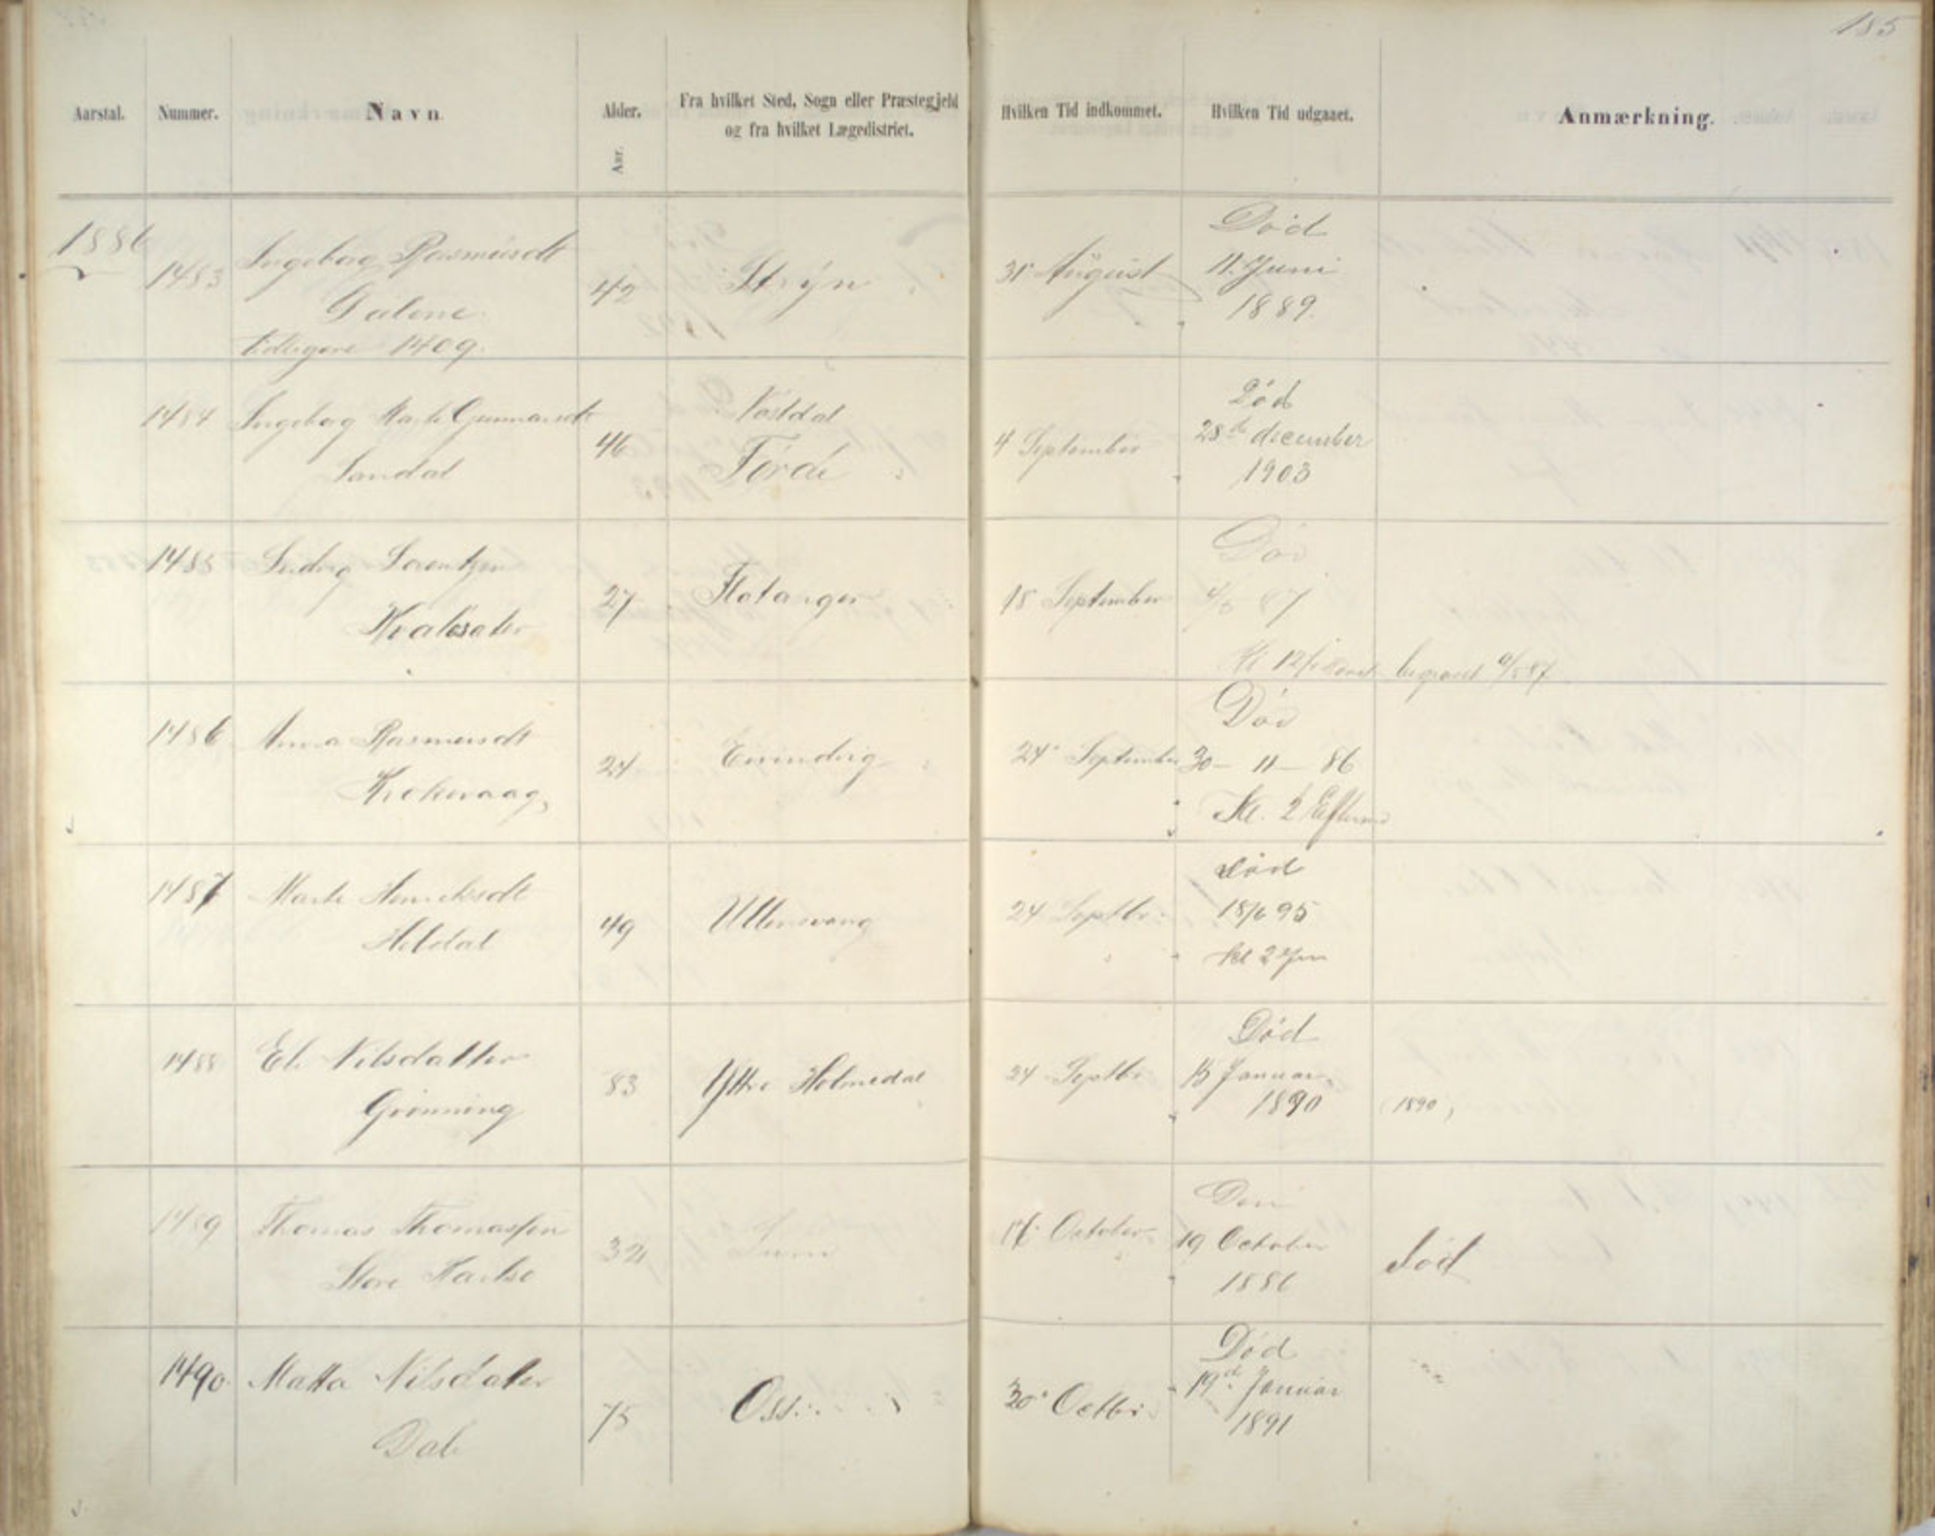 185
Aarstal.
Nummer.
Navn
Alder.
Aar.
Fra hvilket Sted, Sogn eller Præstegjeld
og fra hvilket Lægedistrict.
Hvilken Tid indkommet.
Hvilken Tid udgaaet.
Anmærkning.
1886
1483
Ingeborg Rasmusdt
Galene
tidligere 1409.
42
Stryn
31 August
Død
11. Juni
1889.
1484
Ingeborg Marte Gunnarsdt
Sandal
46
Førde
4 September
Død
28de december
1903
1485
Ludvig Lorentzen
27
Flatanger
18 September
Død
87
begravet
1486
Anna Rasmusdt
24
Evindvig
24 September
Død
30 - 11 - 86
Kl. 2 Efterm
1487
Marte Henriksdt
Heldal
49
Ullensvang
24 Septbr
død
18/6 95
kl 2
1488
Eli Nilsdatter
Grønning
83
Yttre Holmedal
24 Septbr
Død
15 Januar
1890
(1890)
1489
Thomas Thomassen
Store
32
October
Den
19 October
1886
død
1490
Matta Nilsdatter
Dale
75
Os
30 Octbr
Død
19de Januar
1891